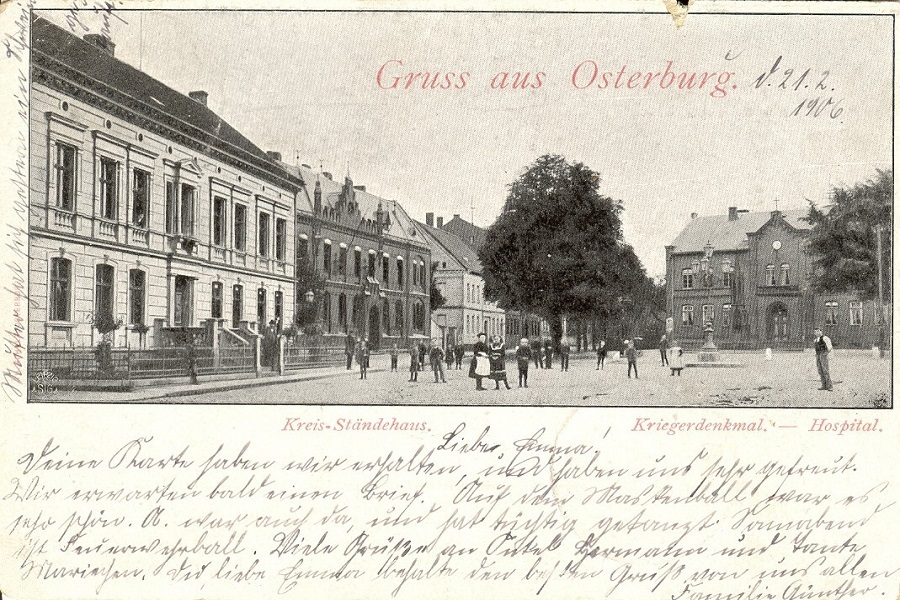 Gruss aus Osterburg.
d. 21. 2.
1906.
Kreis-Ständehaus.
Kriegerdenkmal. — Hospital.
Liebe Emma!
Deine Karte haben wir erhalten, und haben uns sehr gefreut.
Wir erwarten bald einen Brief. Auf dem Maskenball war es
sehr schön. A. war auch da, und hat tüchtig getanzt. Sonnabend
ist Feuerwehrball. Viele Grüße an Onkel Hermann und Tante
Mariechen. Du liebe Emma behalte den besten Gruß von uns allen
Familie Günther.
Mutter hat sich